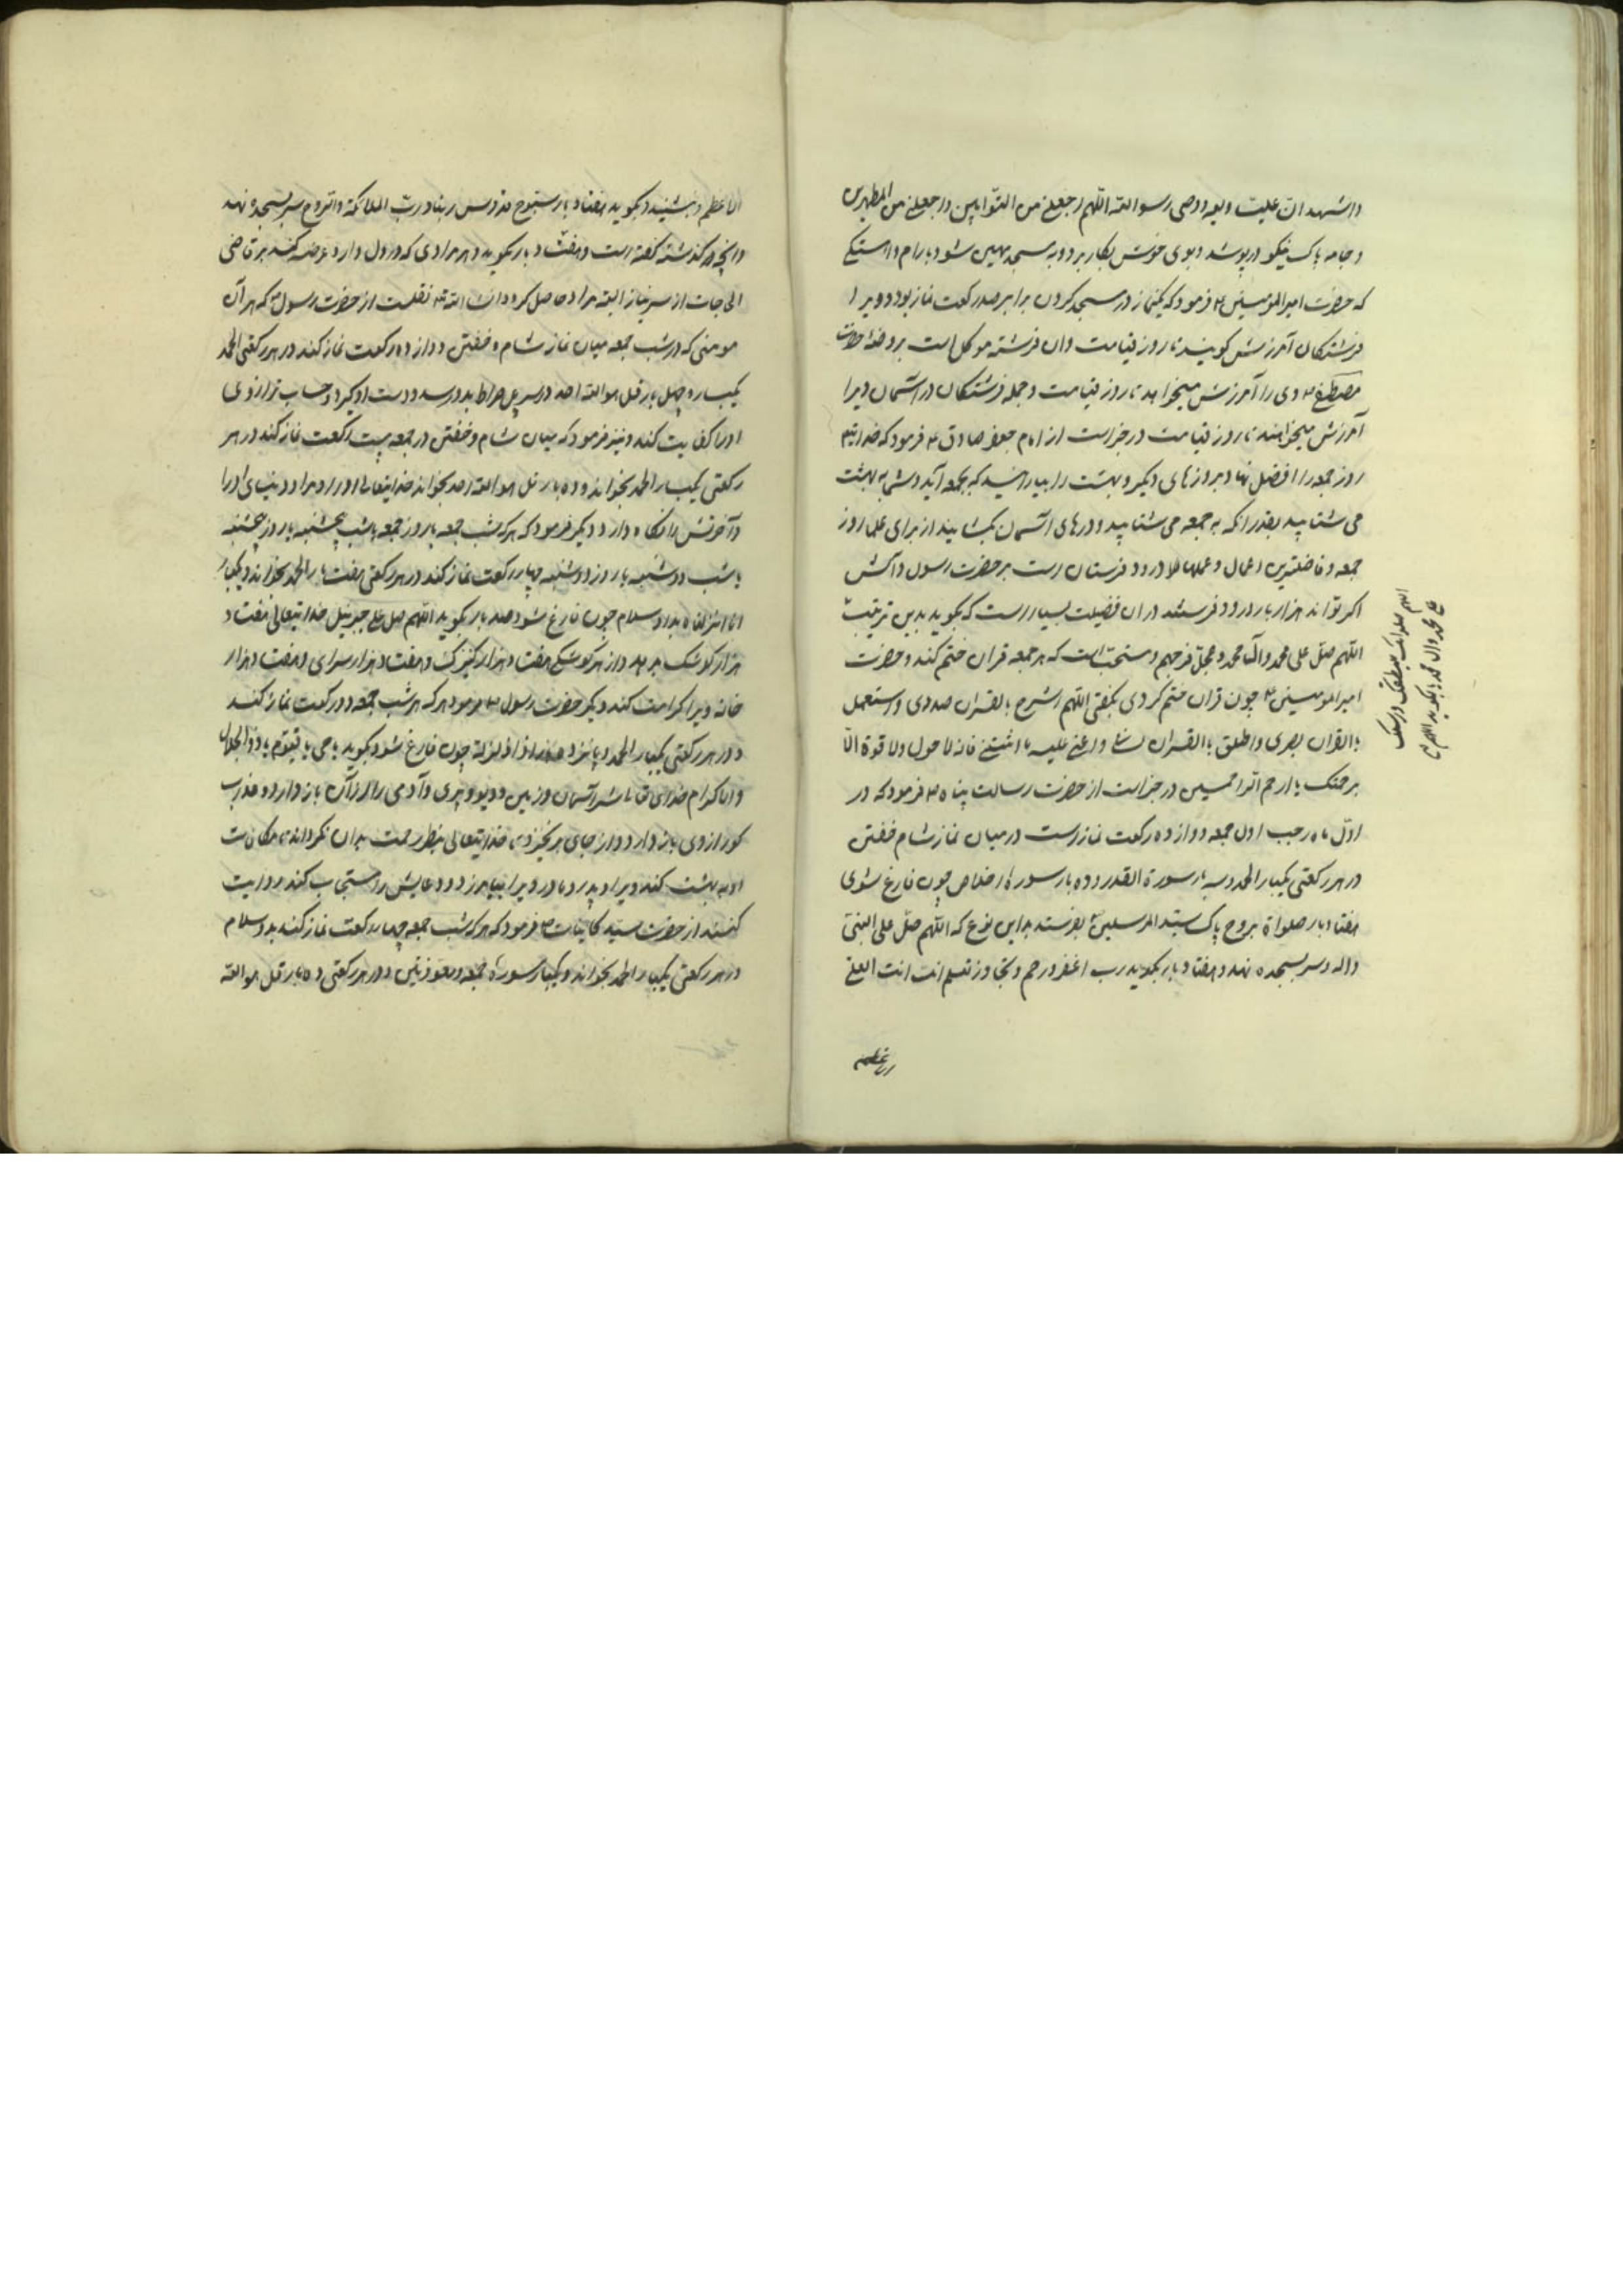 واشهد ان علیت ولیه ووصی رسول الله اللهم اجعلنی من التوابین واجعلنی من المطهرین
وجامه پاک نیکو درپوشد وبوی خوش بکار برد وبه مسجد شود بارام واهستکی
که حضرت امیرالمؤمنین ع فرمود که یکنماز در مسجد کردن برابر صد رکعت نماز بود و ویرا
فرشتکان آمرزش کویند تا روز قیامت وان فرشته موکل است بروضۀ حضرت
مصطفی ص وی را آمرزش میخواهد تا روز قیامت وجمله فرشتکان در آسمان ویرا
آمرزش میخواهند تا روز قیامت در خبر است از امام جعفر صادق ع فرمود که خدایتع
روز جمعه را افضل نهاد بروزهای دیکر و بهشت را بیارایند که بجمعه آید وشما به بهشت
می شتابید بقدر انکه به جمعه می شتابید ودرهای اسمان بکشایند از برای عملها روز
جمعه وفاضلترین اعمال وعملها درود فرستادن است بر حضرت رسول وآلش
اکر تواند هزار بار درود فرستد دران فضیلت بسیار است که بکوید بدین ترتیب
اللهم صل علی محمد وآل محمد وعجل فرجهم ومستحب است که هر جمعه قران ختم کند وحضرت
امیرالمومنین ع چون قران ختم کردی بکفتی اللهم اشرح بالقران صدری واستعمل
بالقران بصری واطلق بالقران لسانی واعنی علیه ما ابقیتنی فانه لا حول ولا قوة الا
برحمتک یا ارحم الراحمین در خبر است از حضرت رسالت پناه ص فرمود که در
اول ماه رجب اول جمعه دوازده رکعت نماز است درمیان نماز شام خفتن
در هر رکعتی یکبار الحمد وسه بار سورة القدر وده بار سورۀ اخلاص چون فارغ شوی
هفتاد بار صلواة بروح پاک سید المرسلین بفرستد باین نوع که اللهم صل علی النبی
واله وسر بسجده نهد وهفتاد بار بکوید رب اغفر وارحم وتجاوز تعلم انت انت العلی
الاعظم
اللهم صلواتک
علی محمد وال محمد بکوید اللهم
الاعظم وبنشیند وبکوید هفتاد بار سبوح قدوس ربنا ورب الملائکة والروح سر بسجده نهد
وانچه در کذشته کفته است وهفتاد بار بکوید وهر مرادی که در دل دارد عرضه کند بر قاضی
الحاجات از سر نیاز البته مراد حاصل کردد انشاء الله تع نقلست از حضرت رسول ص که هر آن
مومنی که در شب جمعه میان نماز شام و خفتن دوازده رکعت نماز کند در هر رکعتی الحمد
یکبار وچهل بار قل هو الله احد در سر پل صراط بدو رسد ودست او کیرد وحساب ترازوی
اورا کفایت کند ونیز فرمود که میان شام وخفتن در جمعه بیست رکعت نماز کند در هر
رکعتی یکبار الحمد بخواند وده بار قل هو الله احد بخواند خدایتعالی اورا ودنیای اورا
وآخرتش را نکاه دارد ودیکر فرمود که هر که شب جمعه یا روز جمعه یا شب پنجشنبه یا روز پنجشنبه
یا شب دوشنبه یا روز دوشنبه چهار رکعت نماز کند در هر رکعتی هفت بار الحمد بخواند ویکبار
انا انزلناه بدو سلام چون فارغ شود صد بار بکوید اللهم صل علی جبرئیل خدایتعالی هفتاد
هزار کوشک بدهد ودر هر کوشکی هفتاد هزار کنیزک وهفتاد هزار سرای وهفتاد هزار
خانه ویرا کرامت کند دیکر حضرت رسول ص فرمود هر که هر شب جمعه دو رکعت نماز کند
ودر هر رکعتی یکبار الحمد وپانزده بار اذا زلزلة چون فارغ شود بکوید یا حی یا قیوم یا ذو الجلال
والاکرام خدای تع شر آسمان وزمین ودیو وپری وآدمی را از آن باز دارد وعذاب
کور ازوی باز دارد واز جای برنخیزد تا خدایتعالی بنظر رحمت بدان نکرداند مکافات
او به بهشت کند ویرا وپدر ومادر ویرا بیامرزد ودعایش را مستجاب کند روایت
کنند از حضرت سید کاینات ص فرمود که هر که شب جمعه چهار رکعت نماز کند بدو سلام
در هر رکعتی یکبار الحمد بخواند ویکبار سورۀ جمعه ومعوذتین ودر هر رکعتی ده بار قل هو الله